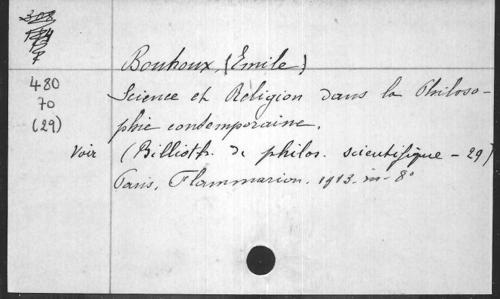 480
70
(29)
Bouhoux, (Emile)
Science et Religion dans la Philoso-
phie contemporaine.
Voir (Billioth. de philos. scientifique - 29)
Paris, Flammarion. 1913. in-8°